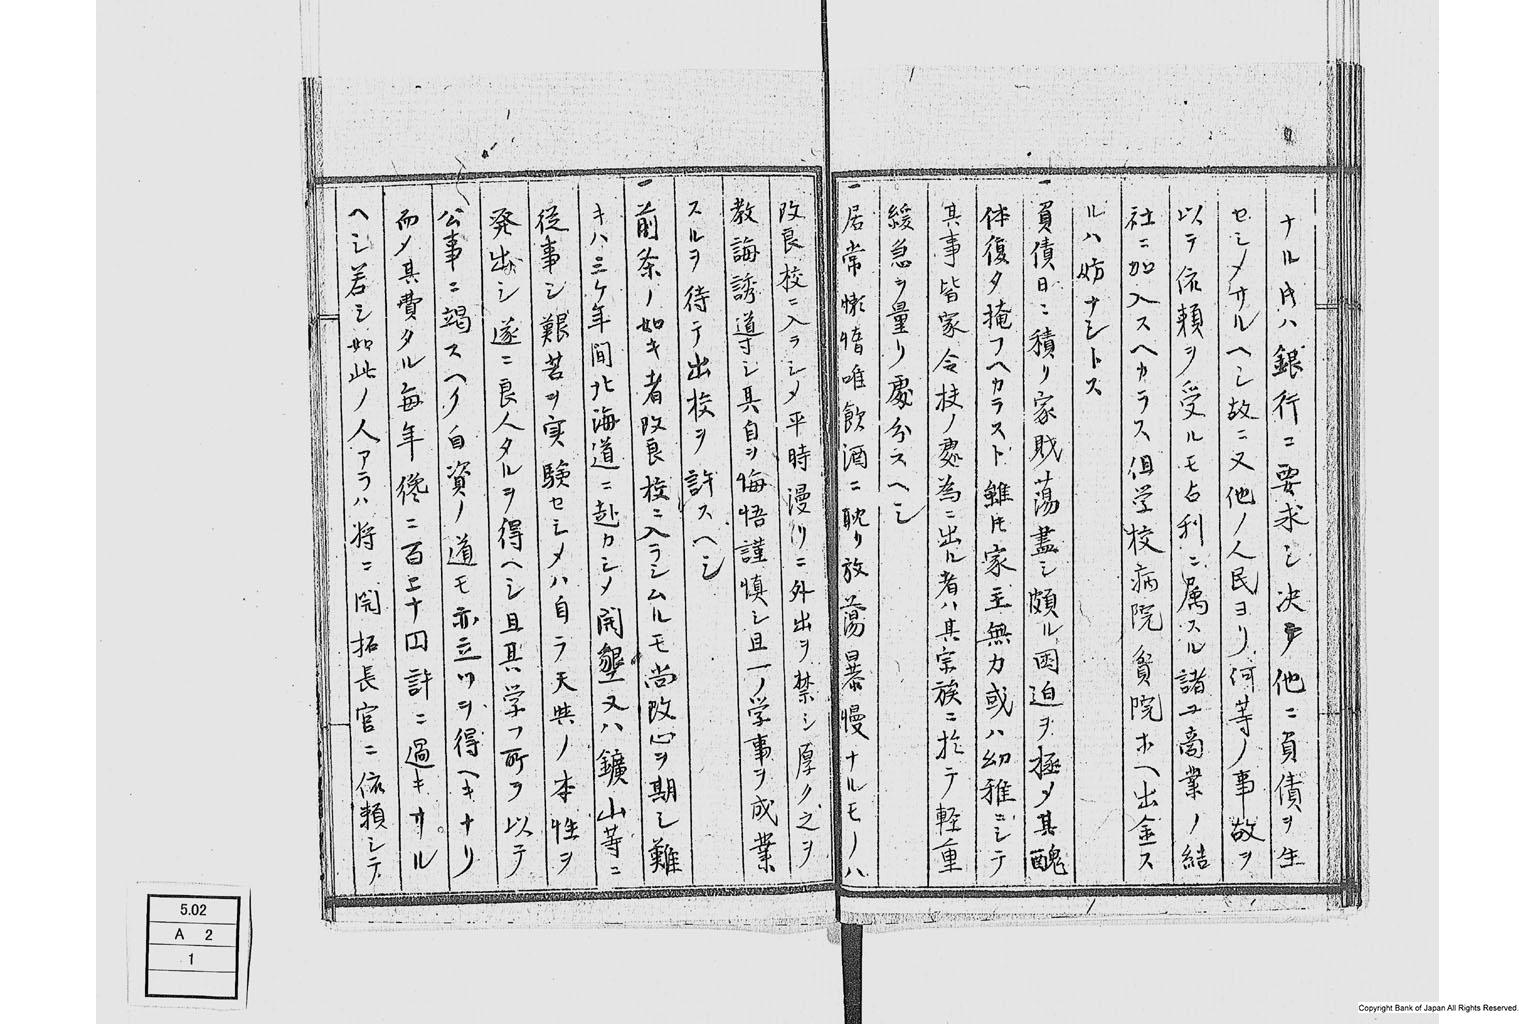 ナルトキハ銀行ニ要求シ決シテ他ニ負債ヲ生
セシメサルヘシ故ニ又他ノ人民ヨリ何等ノ事故ヲ
以テ依頼ヲ受ルモ占利ニ属スル諸工商業ノ結
社ニ加入スヘカラス但学校病院貧院ホヘ出金ス
ルハ妨ナシトス
一負債日ニ積リ家貲蕩盡シ頗ル困迫ヲ極メ其醜
体復タ掩フヘカラスト雖トモ家主無力或ハ幼稚ニシテ
其事皆家令扶ノ處為ニ出ル者ハ其宗族ニ於テ軽重
緩急ヲ量リ處分スヘシ
一居常懶惰唯飲酒ニ耽リ放蕩暴慢ナルモノハ
改良校ニ入ラシメ平時漫リニ外出ヲ禁シ厚ク之ヲ
教誨誘導シ其自ラ悔悟謹慎シ且一ノ学事ヲ成業
スルヲ待テ出校ヲ許スヘシ
一前条ノ如キ者改良校ニ入ラシムルモ尚改心ヲ期シ難
キハ三ケ年間北海道ニ赴カシメ開墾又ハ鑛山等ニ
従事シ艱苦ヲ実験セシメハ自ラ天與ノ本性ヲ
発出シ遂ニ良人タルヲ得ヘシ且其学フ所ヲ以テ
公事ニ竭スヘク自資ノ道モ亦立ツヲ得ヘキナリ
而メ其費タル毎年纔ニ百五十円許ニ過キサル
ヘシ若シ如此ノ人アラハ将ニ開拓長官ニ依頼シテ
5.02
A 2
1
Copyright Bank of Japan All Rights Reserved.